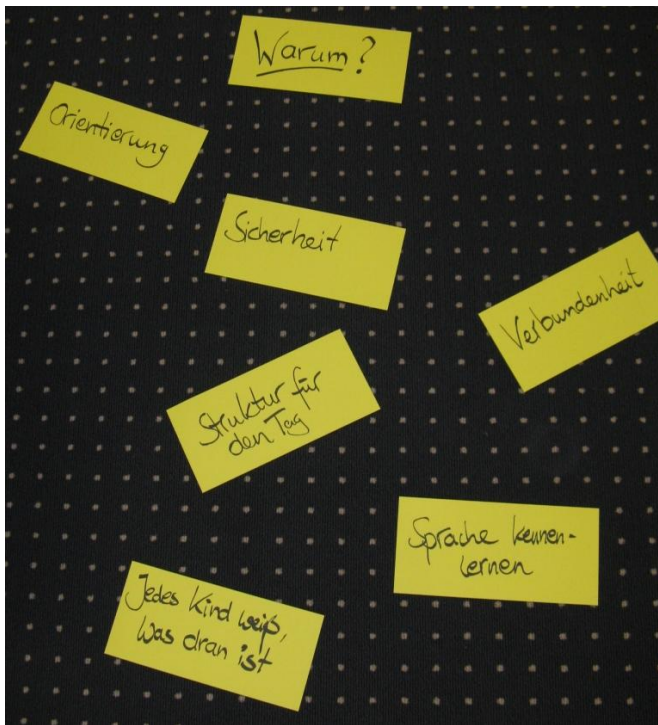 Warum?
Orientierung
Sicherheit
Verbundenheit
Struktur für
den Tag
Sprache kennen-
lernen
Jedes Kind weiß,
was dran ist